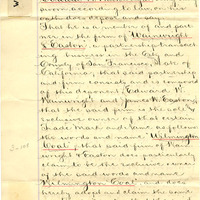 sworn according to law, on his
oath does depose and say:
That he is a member of and part-
ner in the firm of Wainwright
& Easton, a partnership transac-
ting business in the City and
County of San Francisco, State of
California; that said partnership
and firm consists and is composed
of this deponent, Edward W.
Wainwright and James W. Easton;
that the said firm is the
exclusive owner of that certain
Trade Mark and name as follows
the words and name Wilmington
Coal; that said firm of Wain-
wright & Easton does particularly
claim to be the exclusive owner
of the said words and name
Wilmington Coal, and does
hereby adopt and claim the same